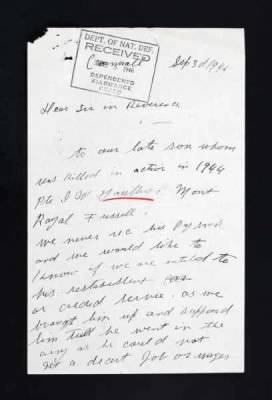 DEPT. OF NAT. DEF.
RECEIVED
Cornwall
1946
DEPENDENTS
ALLOWANCE
Sep 3d 1946
Dear Sir in Reverence
to our late son whom
was killed in action in 1944
Pte J W Gauthier Mont
Royal Fussell.
we never rec his Paybook
and we would like to
know if we are intitled to
his
or credid Service. as we
brought him up and support
him till he went in the
army as he could not
get a decent Job or wages